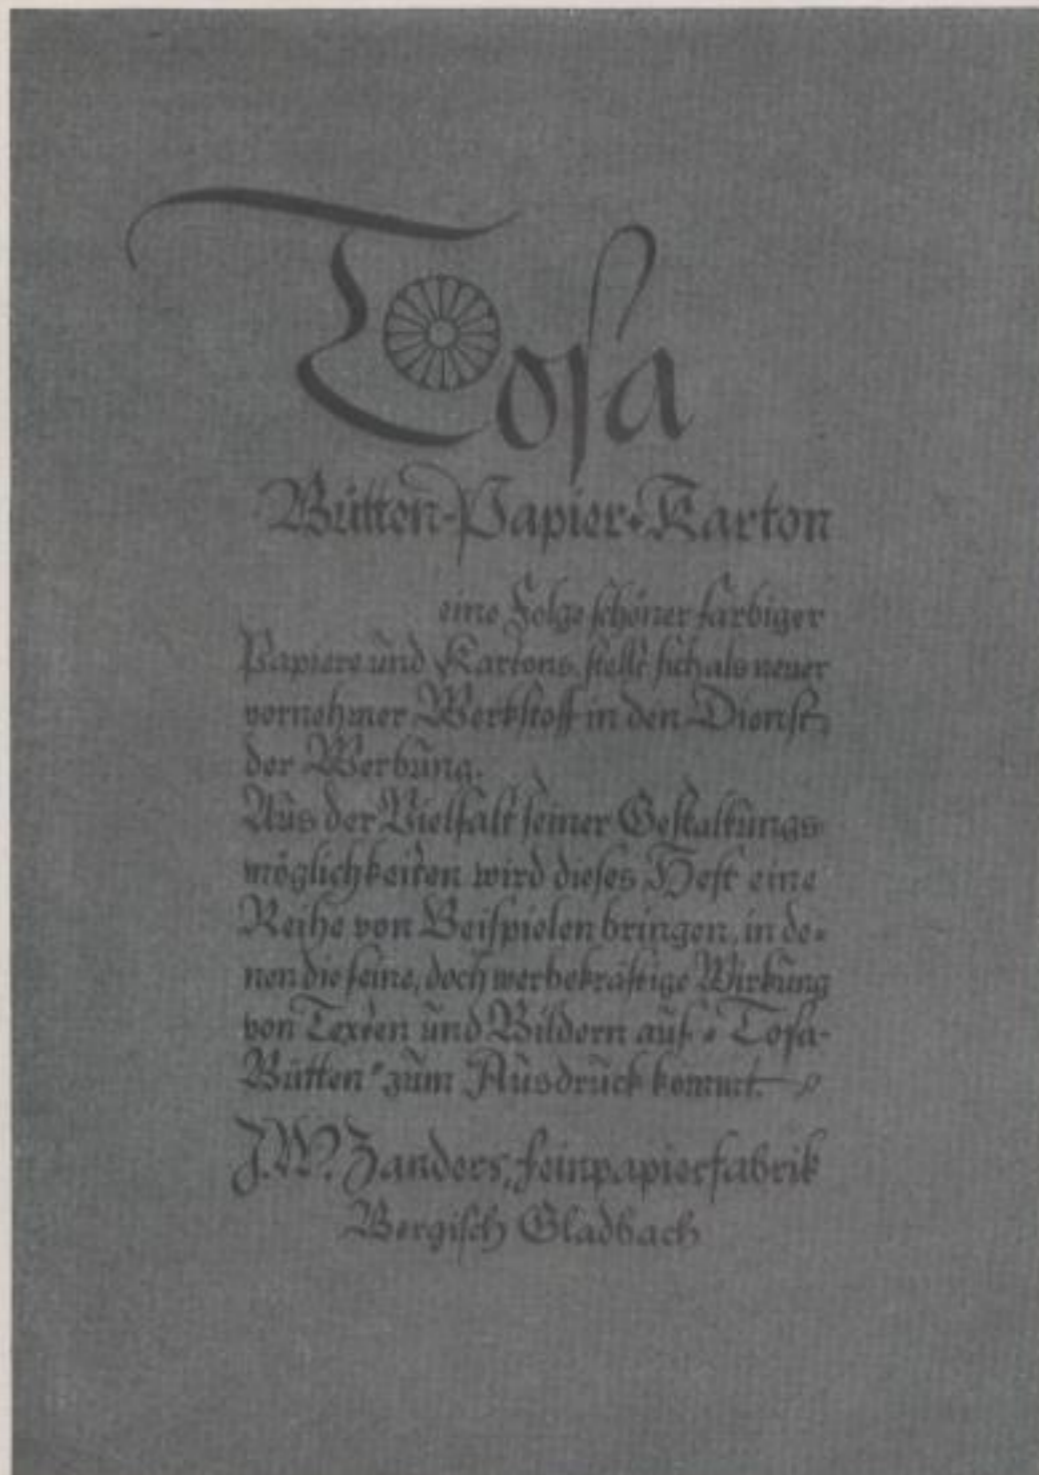 Toſa
Bütten-Papier+Karton
eine Folge ſchöner farbiger
Papiere und Kartons, ſtellt ſich als neuer
vornehmer Werkſtoff in den Dienſt
der Werbung.
Aus der Vielfalt ſeiner Geſtaltungs-
möglichkeiten wird dieſes Heft eine
Reihe von Beiſpielen bringen, in de-
nen die feine, doch werbekräftige Wirkung
von Texten und Bildern auf „Toſa-
Bütten“ zum Ausdruck kommt.
J.W. Zanders, Feinpapierfabrik
Bergiſch Gladbach